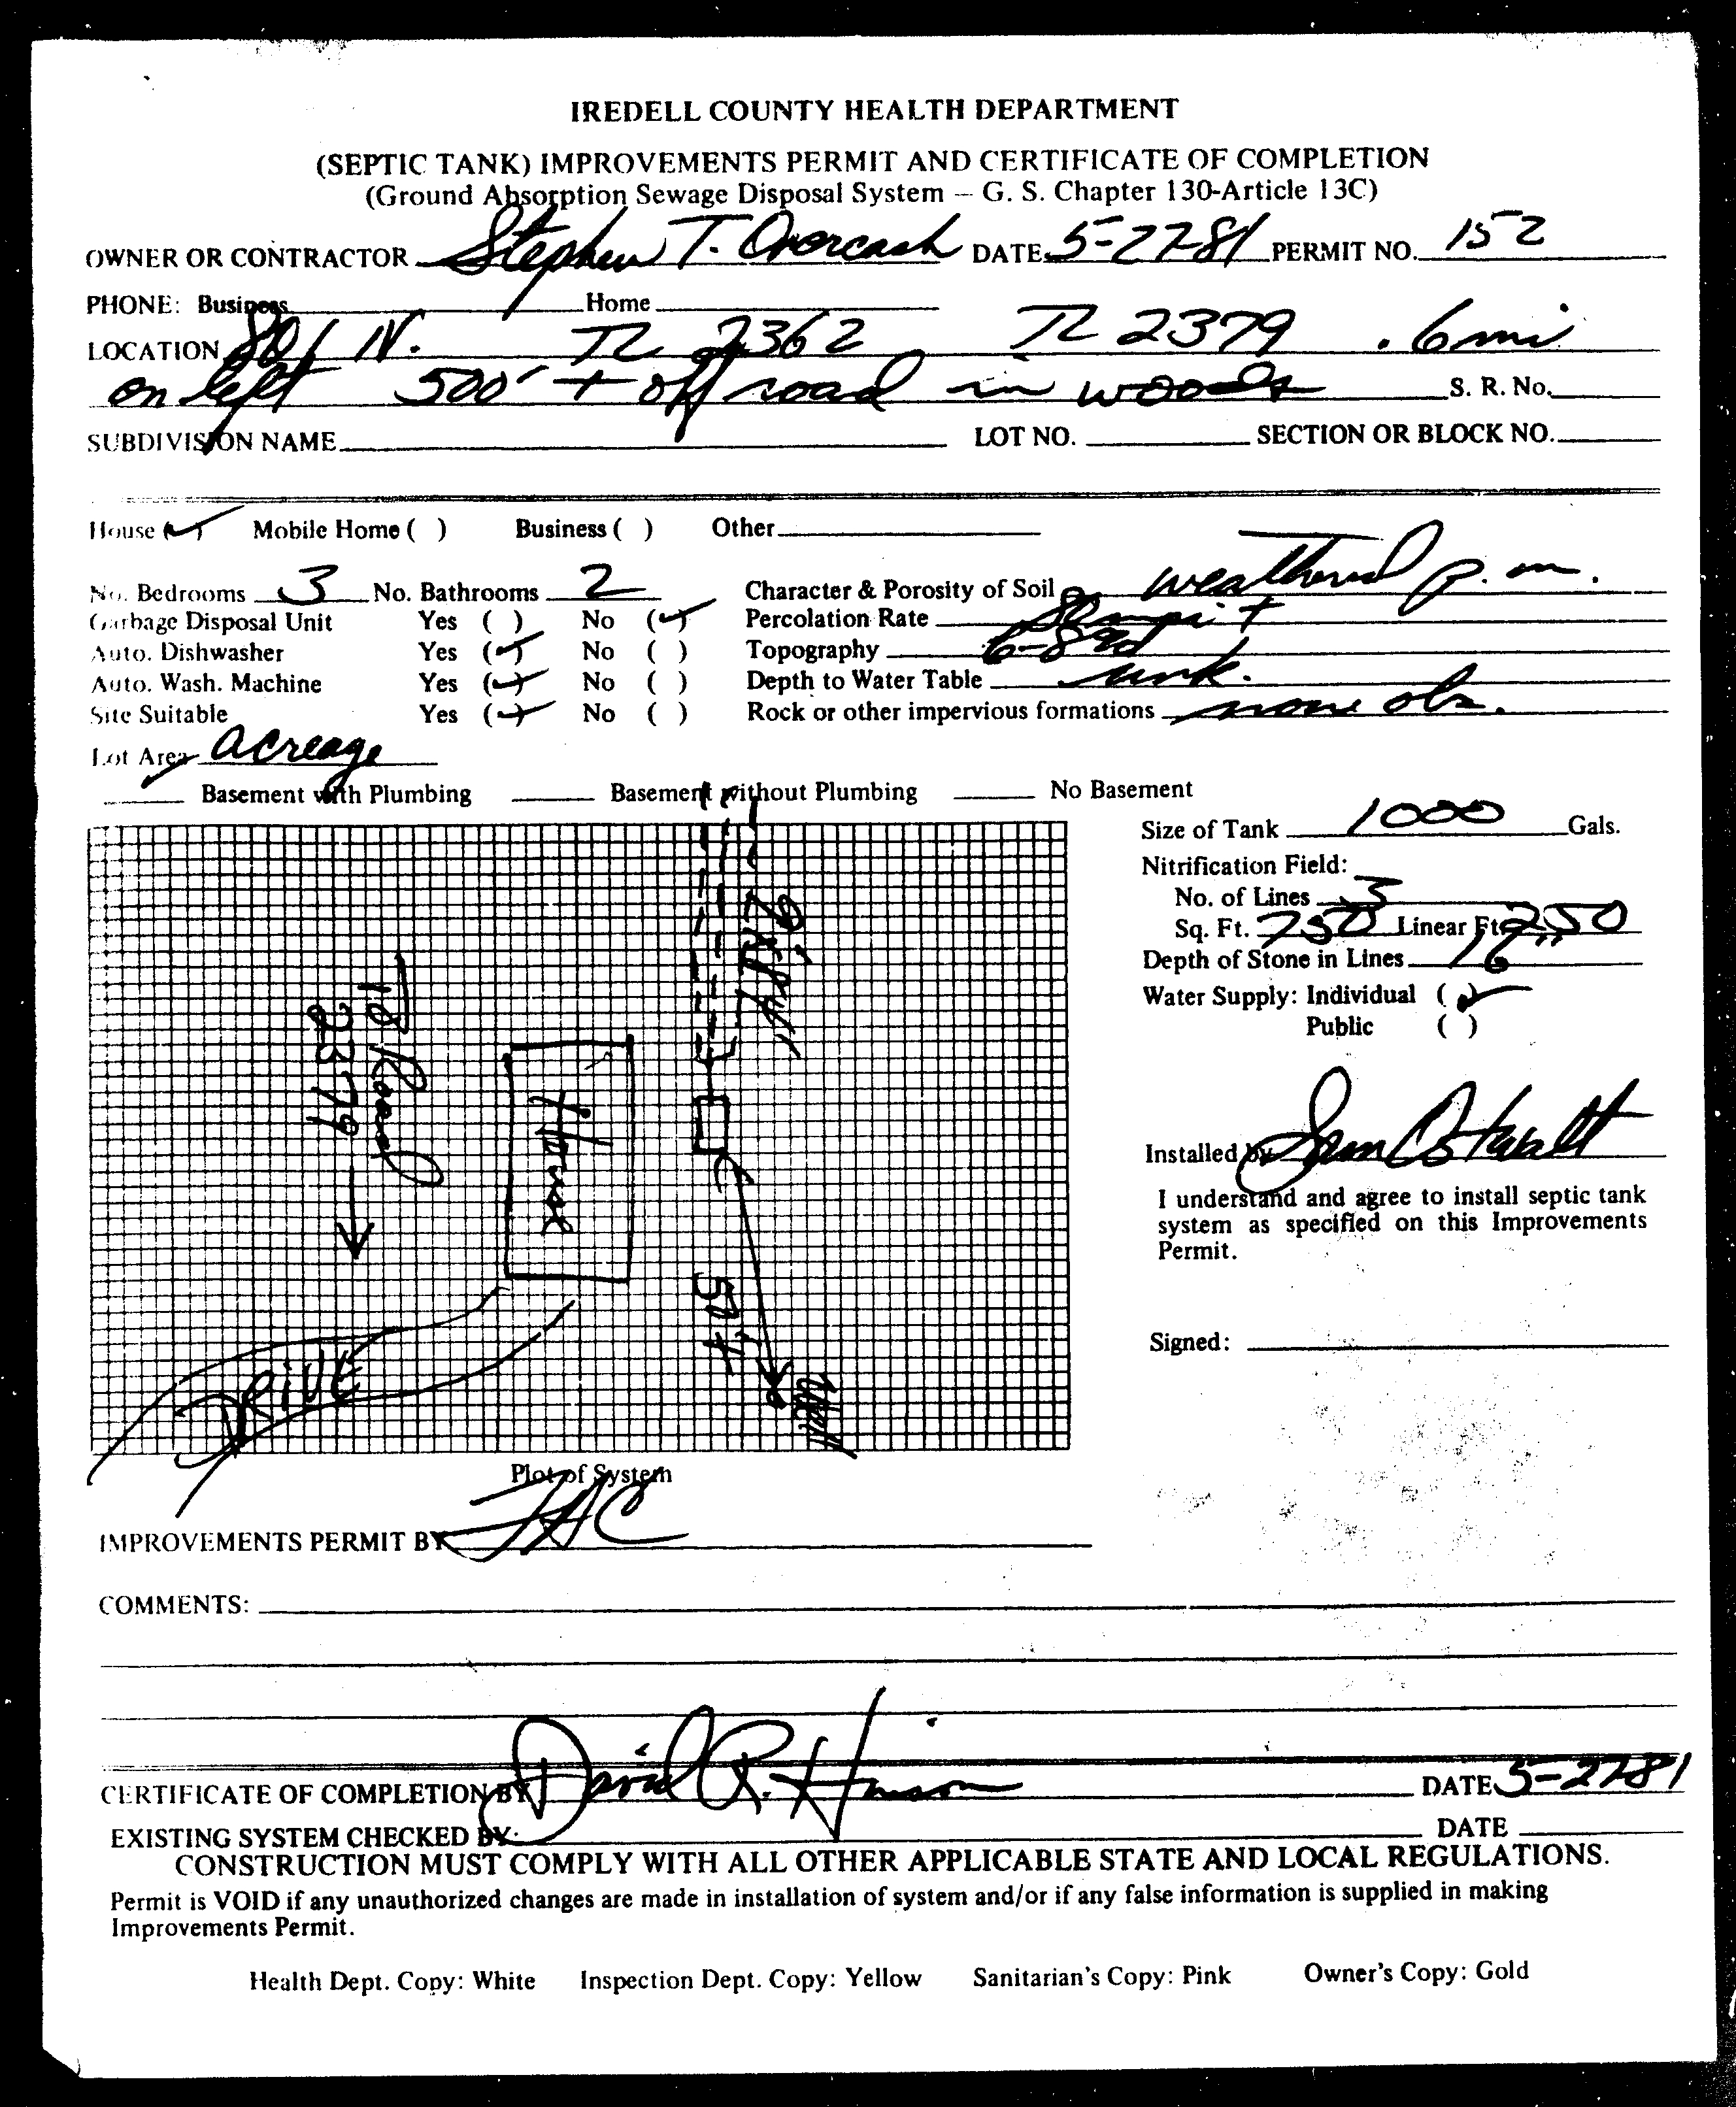 IREDELL COUNTY HEALTH DEPARTMENT
(SEPTIC TANK) IMPROVEMENTS PERMIT AND CERTIFICATE OF COMPLETION
(Ground Absorption Sewage Disposal System — G. S. Chapter 130-Article 13C)
OWNER OR CONTRACTOR Stephen T. Overcash DATE 5-27-81 PERMIT NO. 152
PHONE: Business Home
LOCATION 801 N. TL 2362 TL 2379 .6 mi
on left 500' + off road in woods S. R. No.
SUBDIVISION NAME LOT NO. SECTION OR BLOCK NO.
House (✓) Mobile Home ( ) Business ( ) Other
No. Bedrooms 3 No. Bathrooms 2 Character & Porosity of Soil weathered p. m.
Garbage Disposal Unit Yes ( ) No (✓) Percolation Rate
Auto. Dishwasher Yes (✓) No ( ) Topography 6-8%
Auto. Wash. Machine Yes (✓) No ( ) Depth to Water Table unk.
Site Suitable Yes (✓) No ( ) Rock or other impervious formations none obs.
Lot Area acreage
✓ Basement with Plumbing Basement without Plumbing No Basement
Size of Tank 1000 Gals.
Nitrification Field:
No. of Lines 3
Sq. Ft. 750 Linear Ft. 250
Depth of Stone in Lines 16"
Water Supply: Individual (✓)
Public ( )
To Road
2379
House
57'
Drive
Well
Installed by Sam Ostwalt
I understand and agree to install septic tank
system as specified on this Improvements
Permit.
Signed:
Plot of System
IMPROVEMENTS PERMIT BY
COMMENTS:
CERTIFICATE OF COMPLETION BY David R. Hinson DATE 5-27-81
EXISTING SYSTEM CHECKED BY: DATE
CONSTRUCTION MUST COMPLY WITH ALL OTHER APPLICABLE STATE AND LOCAL REGULATIONS.
Permit is VOID if any unauthorized changes are made in installation of system and/or if any false information is supplied in making
Improvements Permit.
Health Dept. Copy: White Inspection Dept. Copy: Yellow Sanitarian's Copy: Pink Owner's Copy: Gold